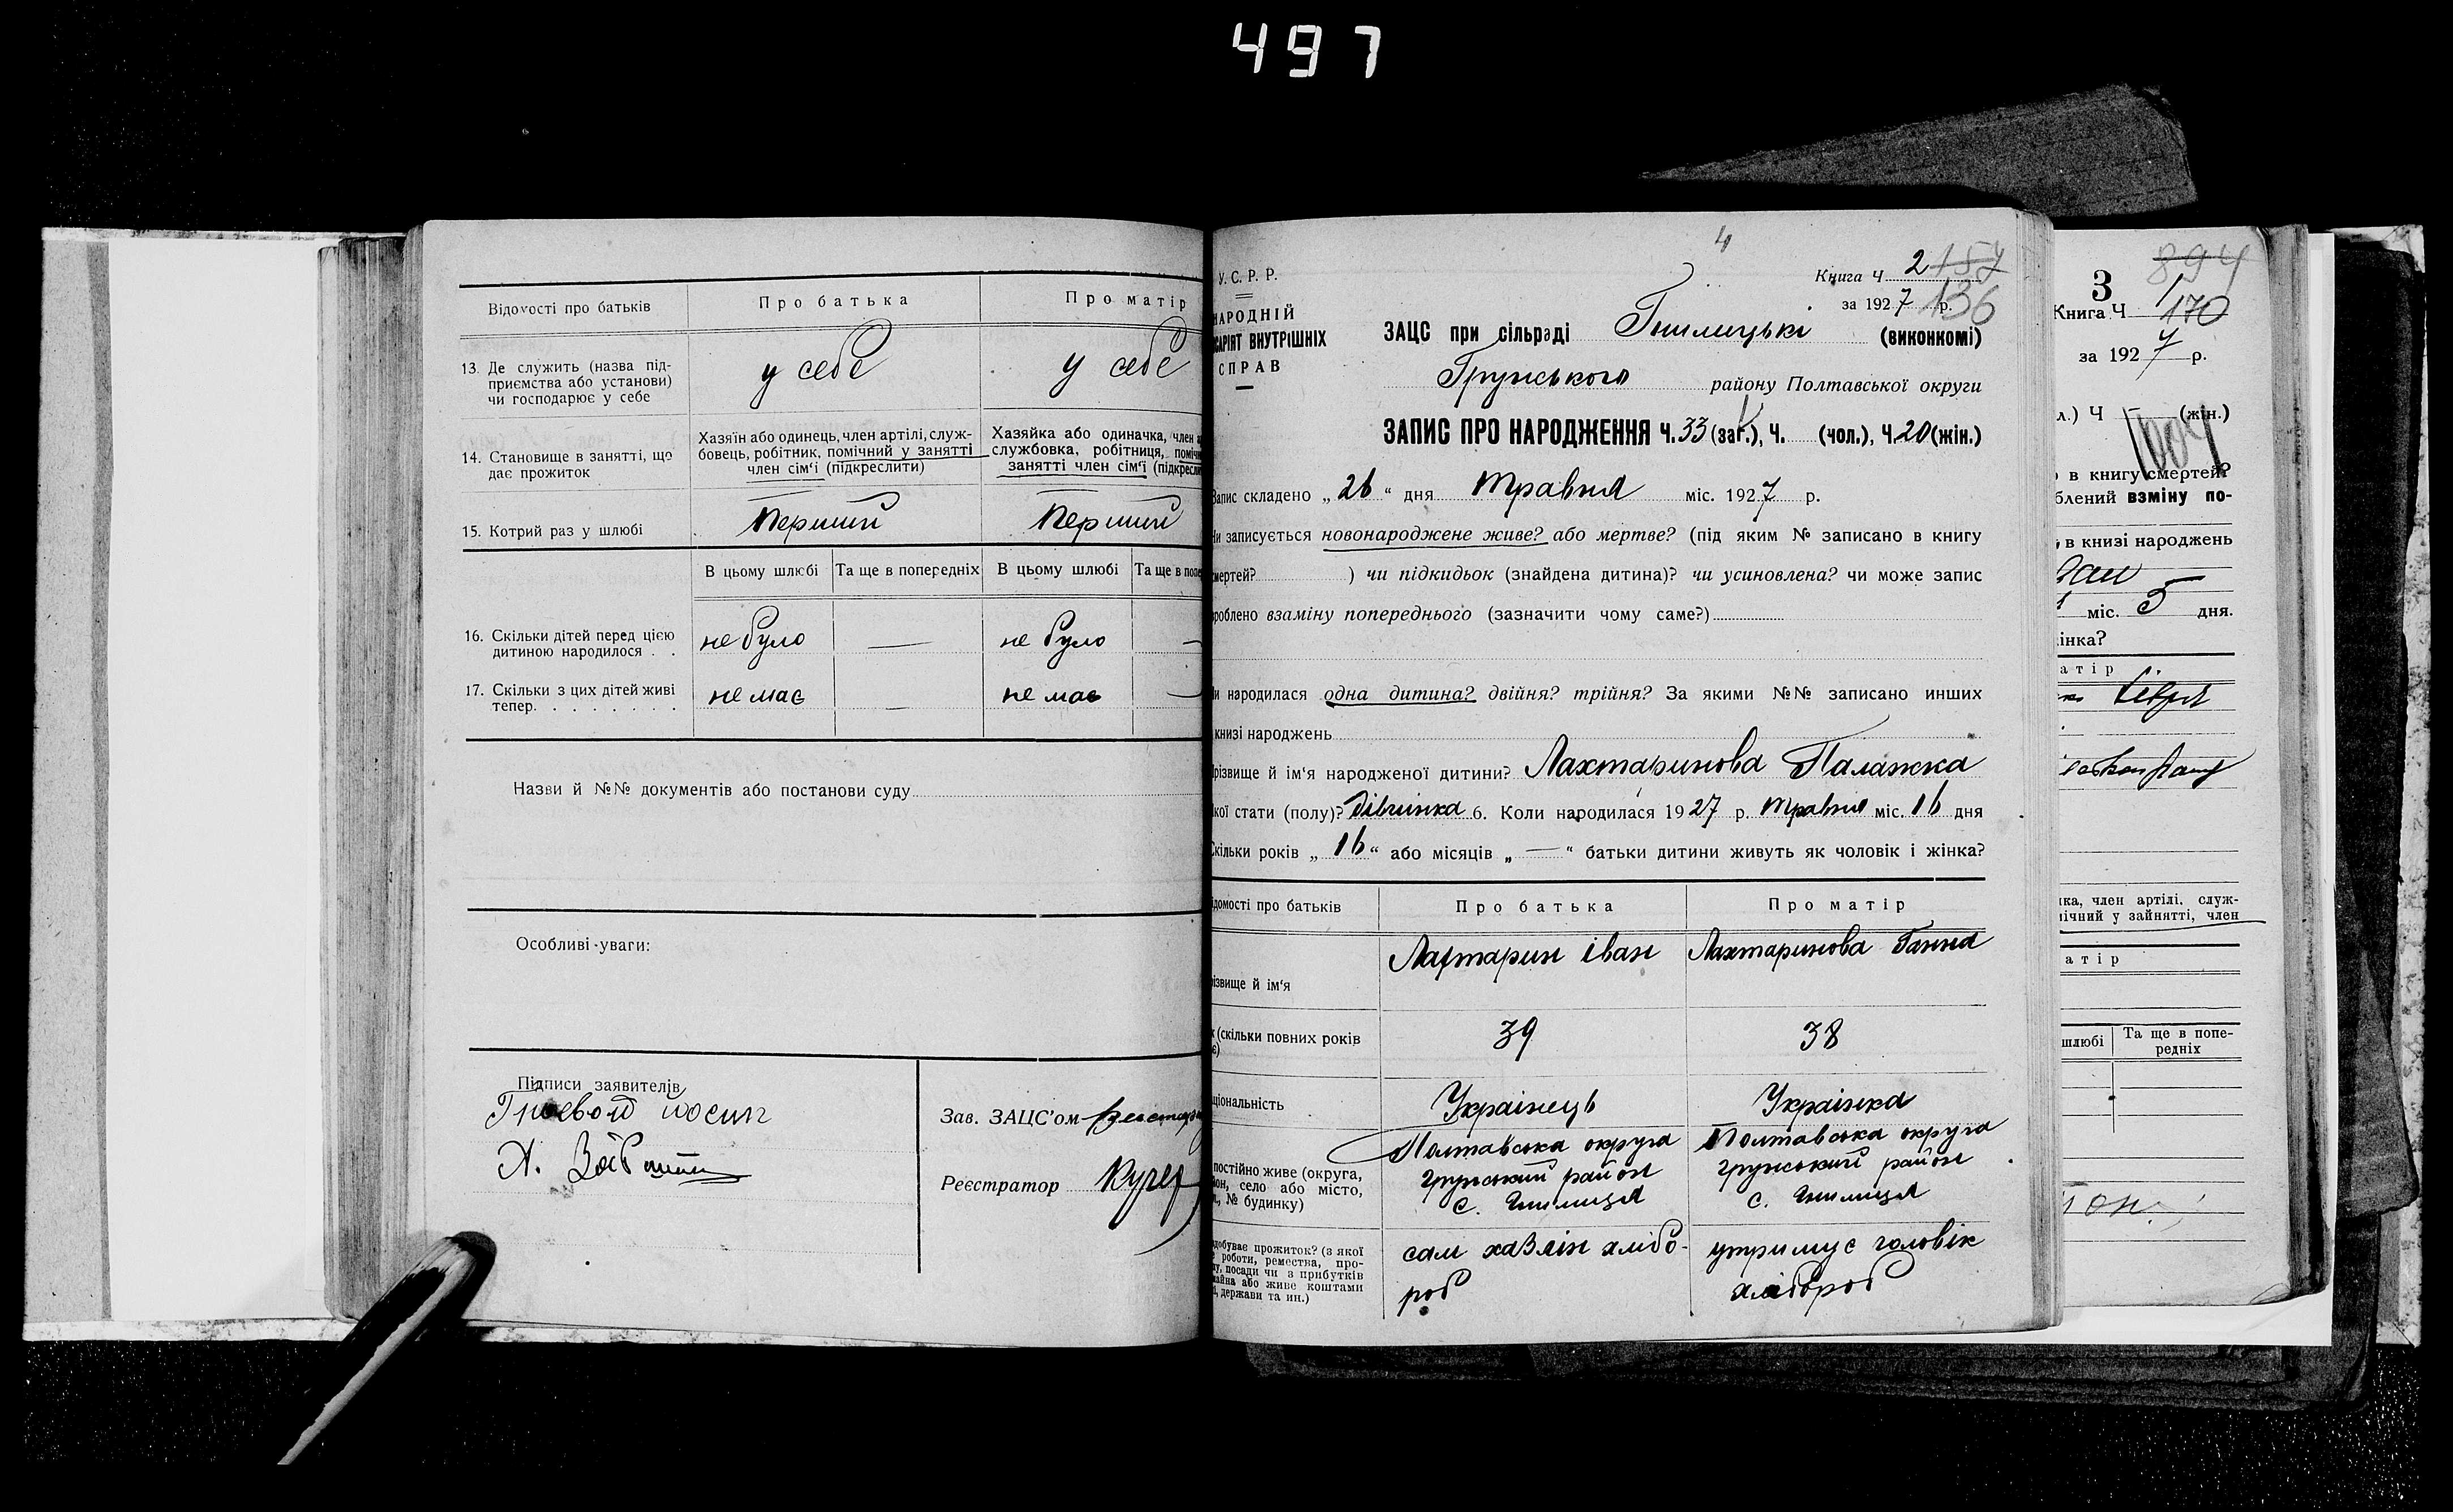 497
Відомості про батьків
Про батька
Про матір
13. Де служить (назва під-
приємства або установи)
чи господарює у себе
у себе
у себе
14. Становище в занятті, що
дає прожиток
Хазяїн або одинець, член артілі, служ-
бовець, робітник, помічний у занятті
член сім'ї (підкреслити)
Хазяйка або одиначка, член
службовка, робітниця,
занятті член сім'ї
15. Котрий раз у шлюбі
Перший
Перший
В цьому шлюбі
Та ще в попередніх
В цьому шлюбі
Та ще в
16. Скільки дітей перед цією
дитиною народилося . .
не було
—
не було
—
17. Скільки з цих дітей живі
тепер. . . . . . . .
не має
—
не має
—
Назви й №№ документів або постанови суду
Особливі уваги:
Підписи заявителів
Зав. ЗАЦС'ом
Реєстратор Кучер
4
У. С. Р. Р.
НАРОДНІЙ
ВНУТРІШНІХ
СПРАВ
Книга Ч 2 157
за 1927 р. 136
ЗАЦС при сільраді Гнилицькі (виконкомі)
Грунського району Полтавської округи
ЗАПИС ПРО НАРОДЖЕННЯ Ч. 33 (заг.), Ч. (чол.), Ч. 20 (жін.)
Запис складено „26“ дня травня міс. 1927 р.
Чи записується новонароджене живе? або мертве? (під яким № записано в книгу
смертей? ) чи підкидьок (знайдена дитина)? чи усиновлена? чи може запис
зроблено взаміну попереднього (зазначити чому саме?)
Чи народилася одна дитина? двійня? трійня? За якими №№ записано инших
книзі народжень
Прізвище й ім'я народженої дитини? Лахтаринова Палажка
Якої стати (полу)? дівчинка 6. Коли народилася 1927 р. травня міс. 16 дня
Скільки років „16“ або місяців „—“ батьки дитини живуть як чоловік і жінка?
Відомості про батьків
Про батька
Про матір
Прізвище й ім'я
Лахтарин Іван
Лахтаринова Ганна
(скільки повних років
39
38
Національність
Українець
Українка
постійно живе (округа,
район, село або місто,
№ будинку)
Полтавська округа
грунський район
с. Гнилиця
Полтавська округа
грунський район
с. Гнилиця
здобуває прожиток? (з якої
роботи, ремества, про-
посади чи з прибутків
майна або живе коштами
держави та ин.)
сам хазяїн хлібо-
роб
утримує чоловік
хлібороб
894
3
Книга Ч 170
за 1927 р.
Ч — (жін.)
1004
в книгу смертей?
зроблений взміну по-
в книзі народжень
міс. 5 дня.
жінка?
матір
член артілі, служ-
помічний у зайнятті, член
матір
шлюбі
Та ще в попе-
редніх